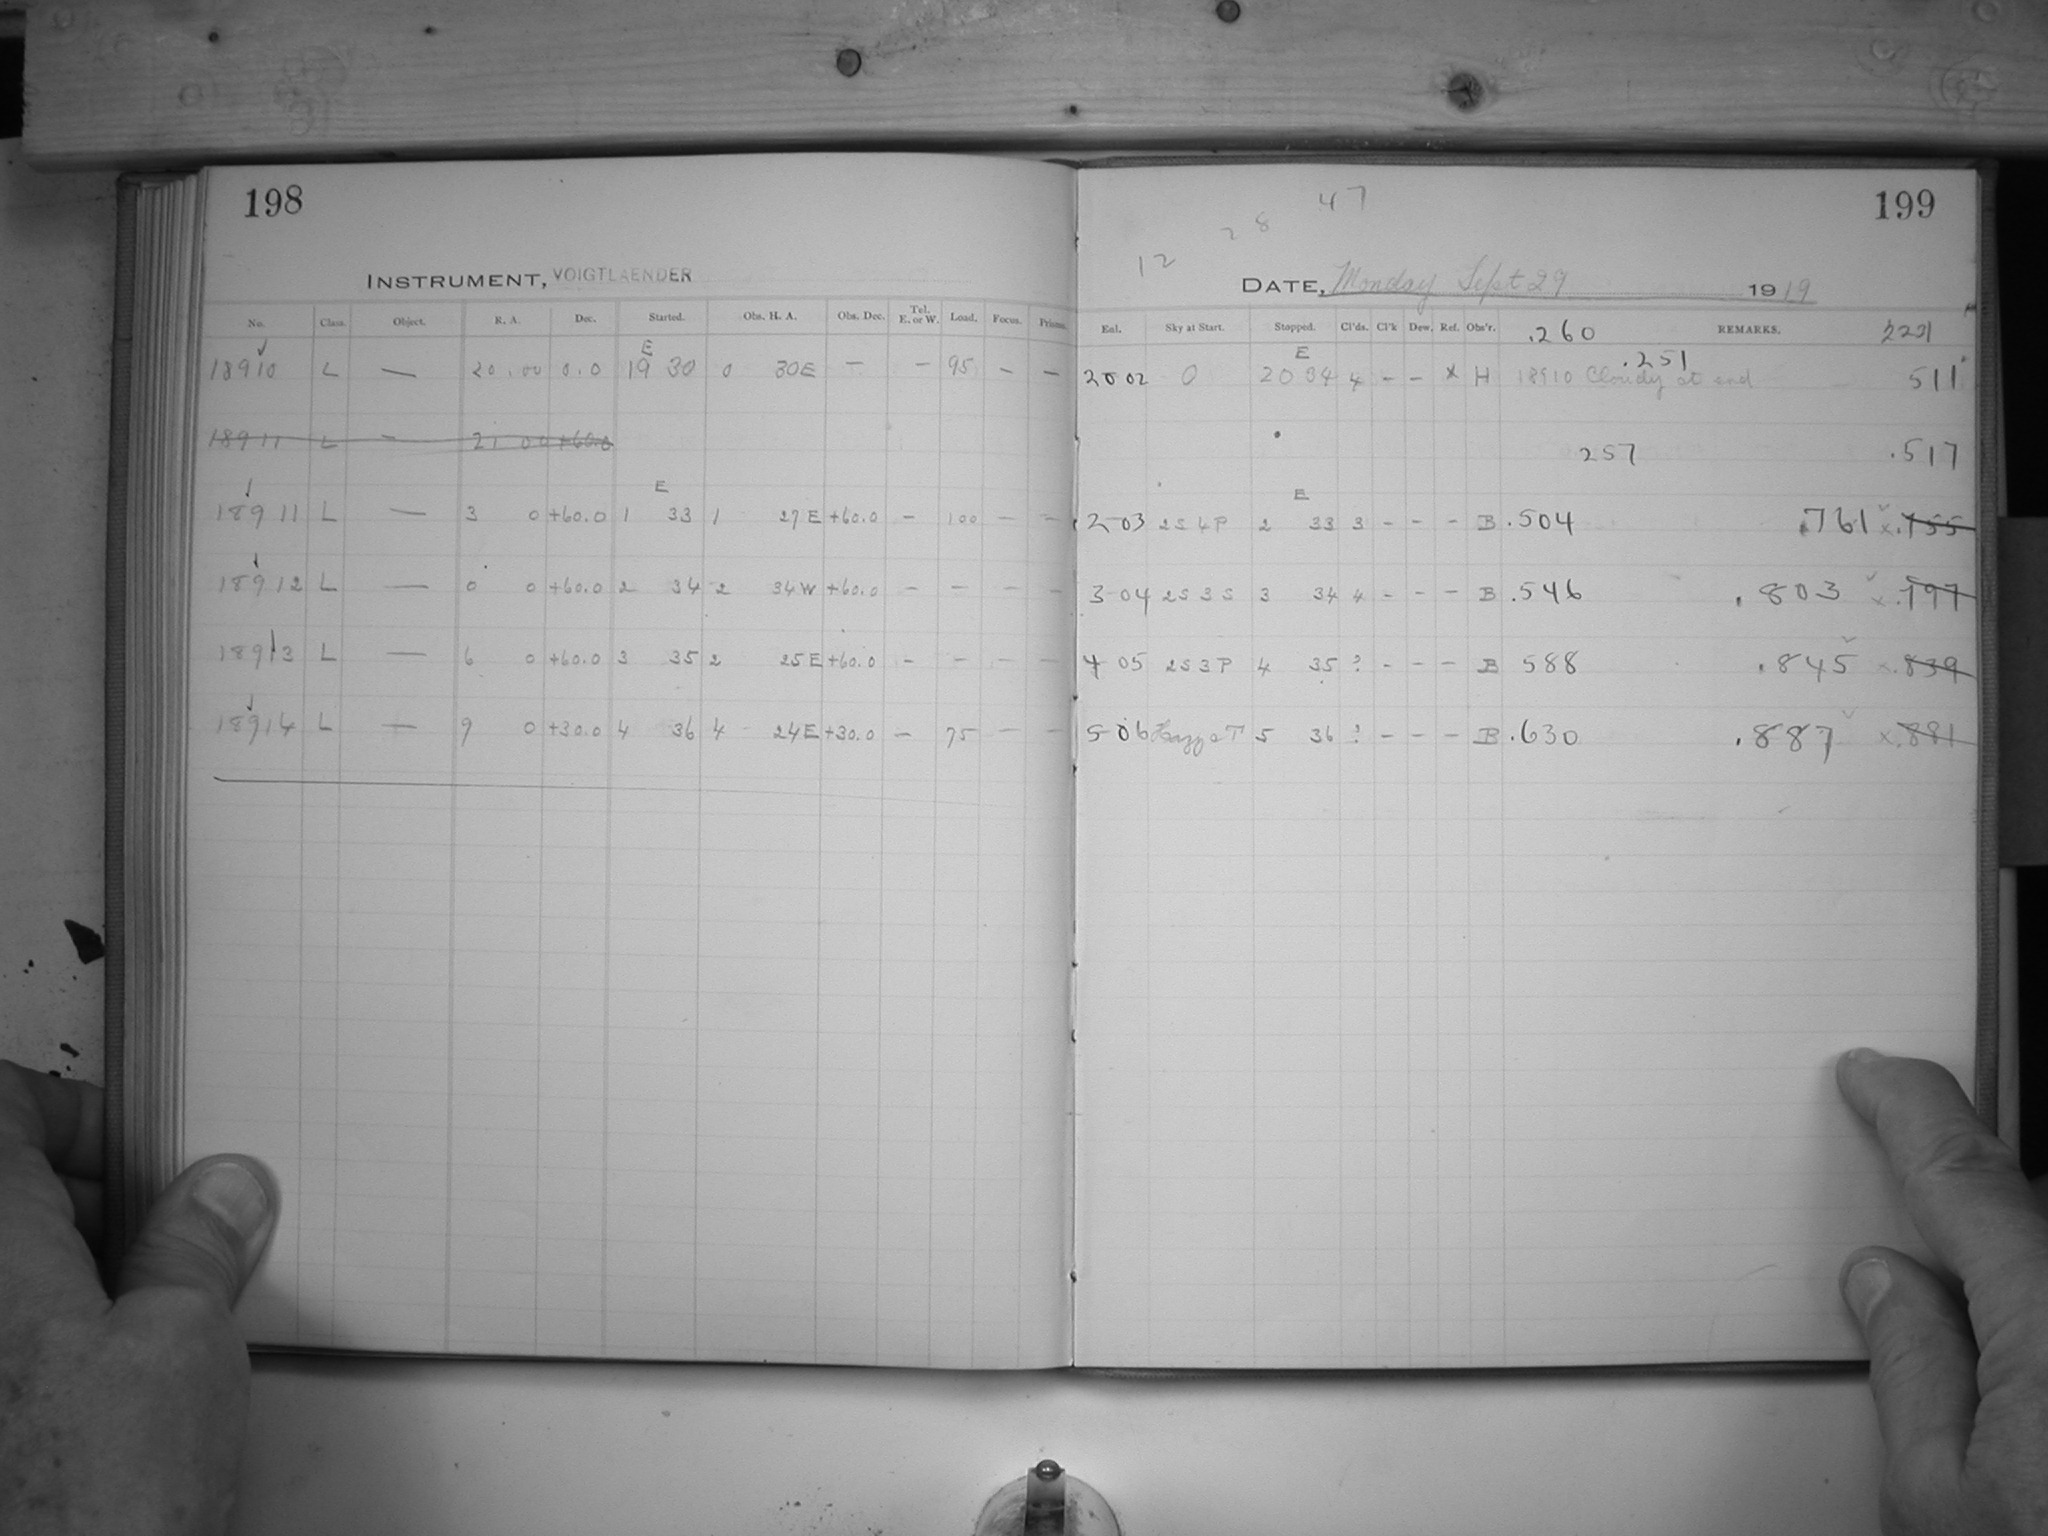 198
INSTRUMENT, VOIGTLAENDER
No. Class. Object. R. A. Dec. Started. Obs. H. A. Obs. Dec. Tel. E. or W. Load. Focus. Prisms.
E
18910 L — 20.00 0.0 19 30 0 30E — — 95 — —
18911 L — 21 00 +60.0
E
18911 L — 3 0 +60.0 1 33 1 27E +60.0 — 100 — —
18912 L — 0 0 +60.0 2 34 2 34W +60.0 — — — —
18913 L — 6 0 +60.0 3 35 2 25E +60.0 — — — —
18914 L — 9 0 +30.0 4 36 4 24E +30.0 — 75 — —
199
47
28
12
DATE, Monday Sept 29 1919
Enl. Sky at Start. Stopped. Cl'ds. Cl'k Dew. Ref. Obs'r. .260 REMARKS. 2221
E .251
20 02 0 20 34 4 - - x H 18910 Cloudy at end 511
257 .517
E
2-03 2S4P 2 33 3 - - - B .504 .761 x .755
3-04 2S3S 3 34 4 - - - B .546 .803 x .797
4 05 2S3P 4 35 ? - - - B 588 .845 x .839
5 06 T 5 36 ? - - - B .630 .887 x .881